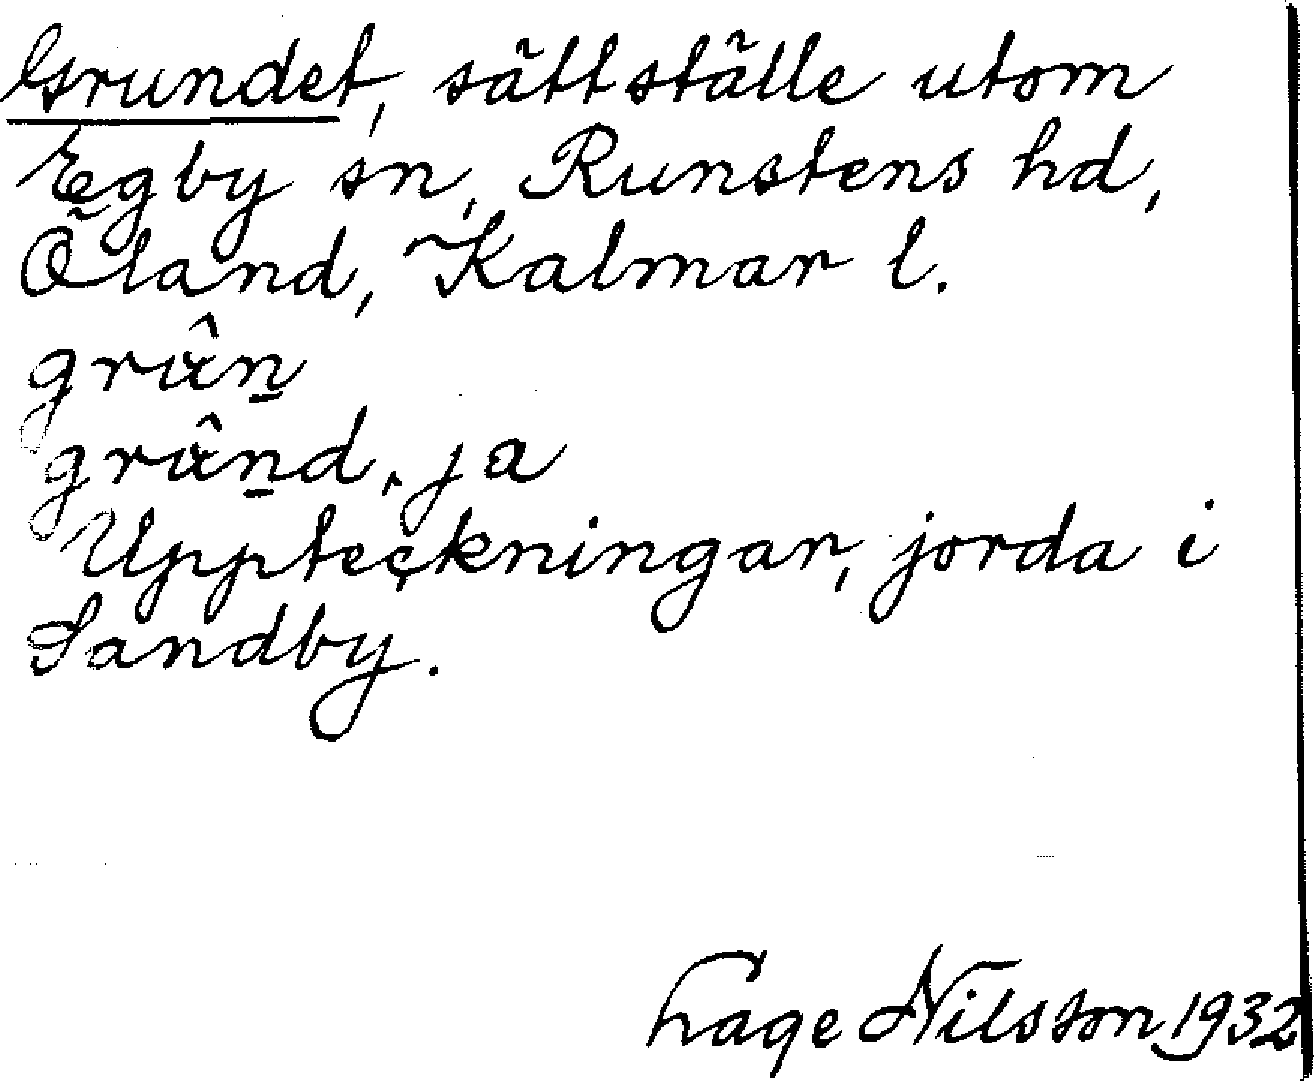 Grundet, sättställe utom
Egby sn, Runstens hd,
Öland, Kalmar l.
grân̲
grân̲d, ja
Uppteckningar, jorda i
Sandby.
Lage Nilsson 1932